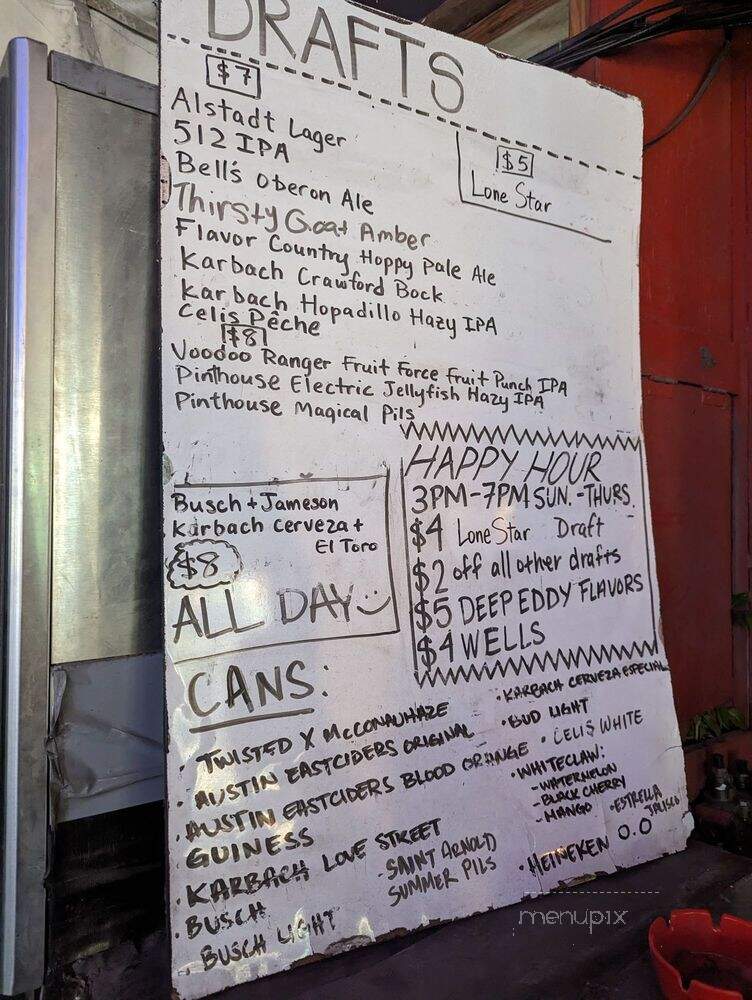 DRAFTS
$7
Alstadt Lager
512 IPA
Bell's Oberon Ale
Thirsty Goat Amber
Flavor Country Hoppy Pale Ale
Karbach Crawford Bock
Karbach Hopadillo Hazy IPA
Celis Pêche
$5
Lone Star
$8
Voodoo Ranger Fruit Force Fruit Punch IPA
Pinthouse Electric Jellyfish Hazy IPA
Pinthouse Magical Pils
Busch + Jameson
Karbach Cerveza +
El Toro
$8
ALL DAY
HAPPY HOUR
3PM-7PM SUN.-THURS.
$4 Lone Star Draft
$2 off all other drafts
$5 DEEP EDDY FLAVORS
$4 WELLS
CANS:
· TWISTED X McCONAUHAZE
· AUSTIN EASTCIDERS ORIGINAL
· AUSTIN EASTCIDERS BLOOD ORANGE
· GUINESS
· KARBACH LOVE STREET
· BUSCH
· BUSCH LIGHT
- SAINT ARNOLD
SUMMER PILS
· KARBACH CERVEZA ESPECIAL
· BUD LIGHT
· CELIS WHITE
· WHITECLAW:
- WATERMELON
- BLACK CHERRY
- MANGO
· ESTRELLA
JALISCO
· HEINEKEN 0.0
menupix